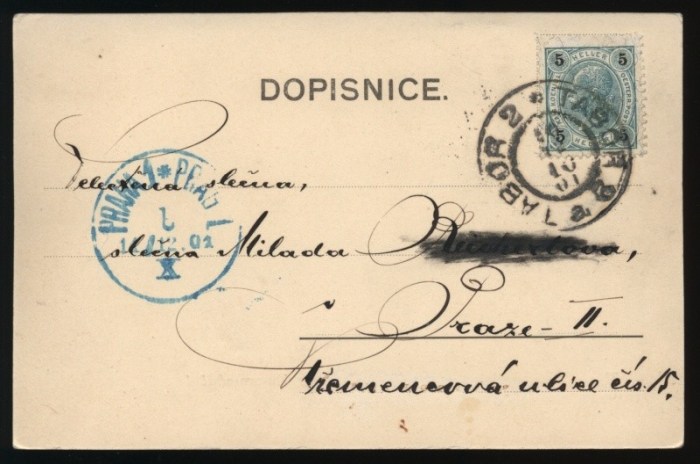 DOPISNICE.
5 HELLER 5
5 HELLER 5
TÁBOR 2 * TABOR 2 *
10
01
PRAHA 1 * PRAG 1
X
Velectěná slečna,
slečna Milada
v Praze - II.
Křemencová ulice čís. 15.